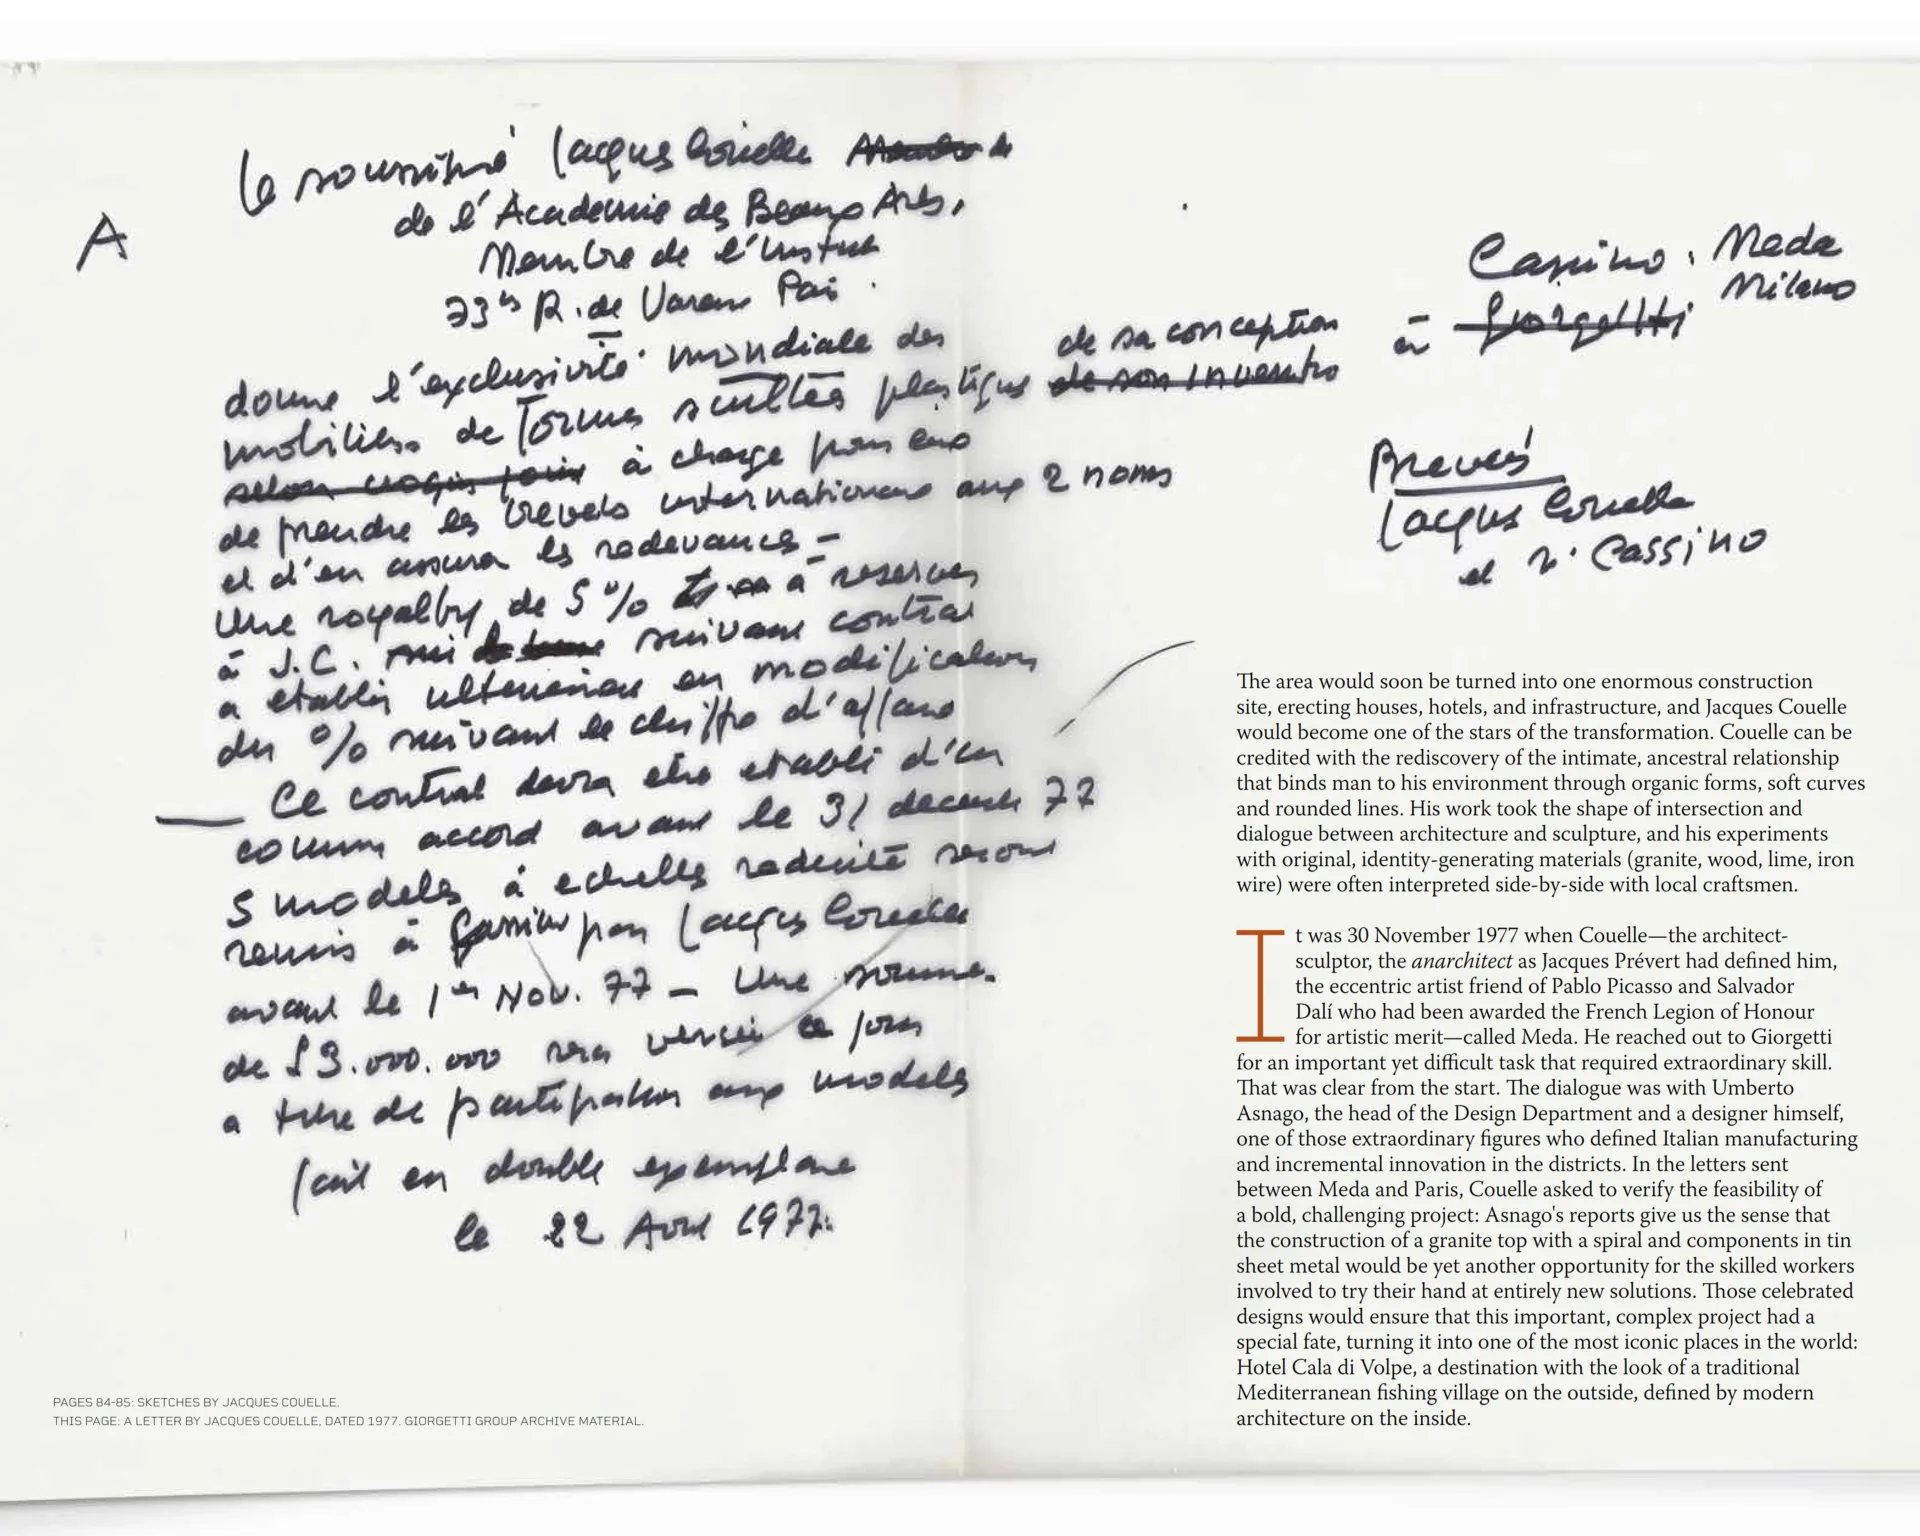 A
Le soussigné Jacques Couelle
de l'Academie des Beaux Arts,
Membre de l'Institut
73 bis R. de Varenne Paris.
donne l'exclusivité mondiale des
mobiliers de Formes scultées plastique de sa conception
de son invention
à Giorgetti
Cassino. Meda
Milano
selon croquis joint à charge pour eux
de prendre les brevets internationaux aux 2 noms
et d'en assurer les redevances -
Une royalty de 5% à reserver
à J.C. suivant contrat
a etablir ulterieur en modification
du % suivant le chiffre d'affaire
Ce contrat devra etre etabli d'un
commun accord avant le 31 decembre 77
5 models à echelles reduite seront
remis à Cassino par Jacques Couelle
avant le 1er Nov. 77 - Une somme
de £3.000.000 sera versé ce jour
a titre de participation aux models
fait en double exemplaire
le 22 Avril 1977.
Brevets
Jacques Couelle
et Cassino
The area would soon be turned into one enormous construction
site, erecting houses, hotels, and infrastructure, and Jacques Couelle
would become one of the stars of the transformation. Couelle can be
credited with the rediscovery of the intimate, ancestral relationship
that binds man to his environment through organic forms, soft curves
and rounded lines. His work took the shape of intersection and
dialogue between architecture and sculpture, and his experiments
with original, identity-generating materials (granite, wood, lime, iron
wire) were often interpreted side-by-side with local craftsmen.
It was 30 November 1977 when Couelle—the architect-
sculptor, the anarchitect as Jacques Prévert had defined him,
the eccentric artist friend of Pablo Picasso and Salvador
Dalí who had been awarded the French Legion of Honour
for artistic merit—called Meda. He reached out to Giorgetti
for an important yet difficult task that required extraordinary skill.
That was clear from the start. The dialogue was with Umberto
Asnago, the head of the Design Department and a designer himself,
one of those extraordinary figures who defined Italian manufacturing
and incremental innovation in the districts. In the letters sent
between Meda and Paris, Couelle asked to verify the feasibility of
a bold, challenging project: Asnago's reports give us the sense that
the construction of a granite top with a spiral and components in tin
sheet metal would be yet another opportunity for the skilled workers
involved to try their hand at entirely new solutions. Those celebrated
designs would ensure that this important, complex project had a
special fate, turning it into one of the most iconic places in the world:
Hotel Cala di Volpe, a destination with the look of a traditional
Mediterranean fishing village on the outside, defined by modern
architecture on the inside.
PAGES 84-85: SKETCHES BY JACQUES COUELLE.
THIS PAGE: A LETTER BY JACQUES COUELLE, DATED 1977. GIORGETTI GROUP ARCHIVE MATERIAL.